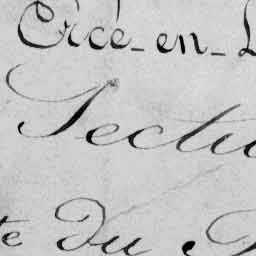 Ercé-en-L
Sectio
te du P